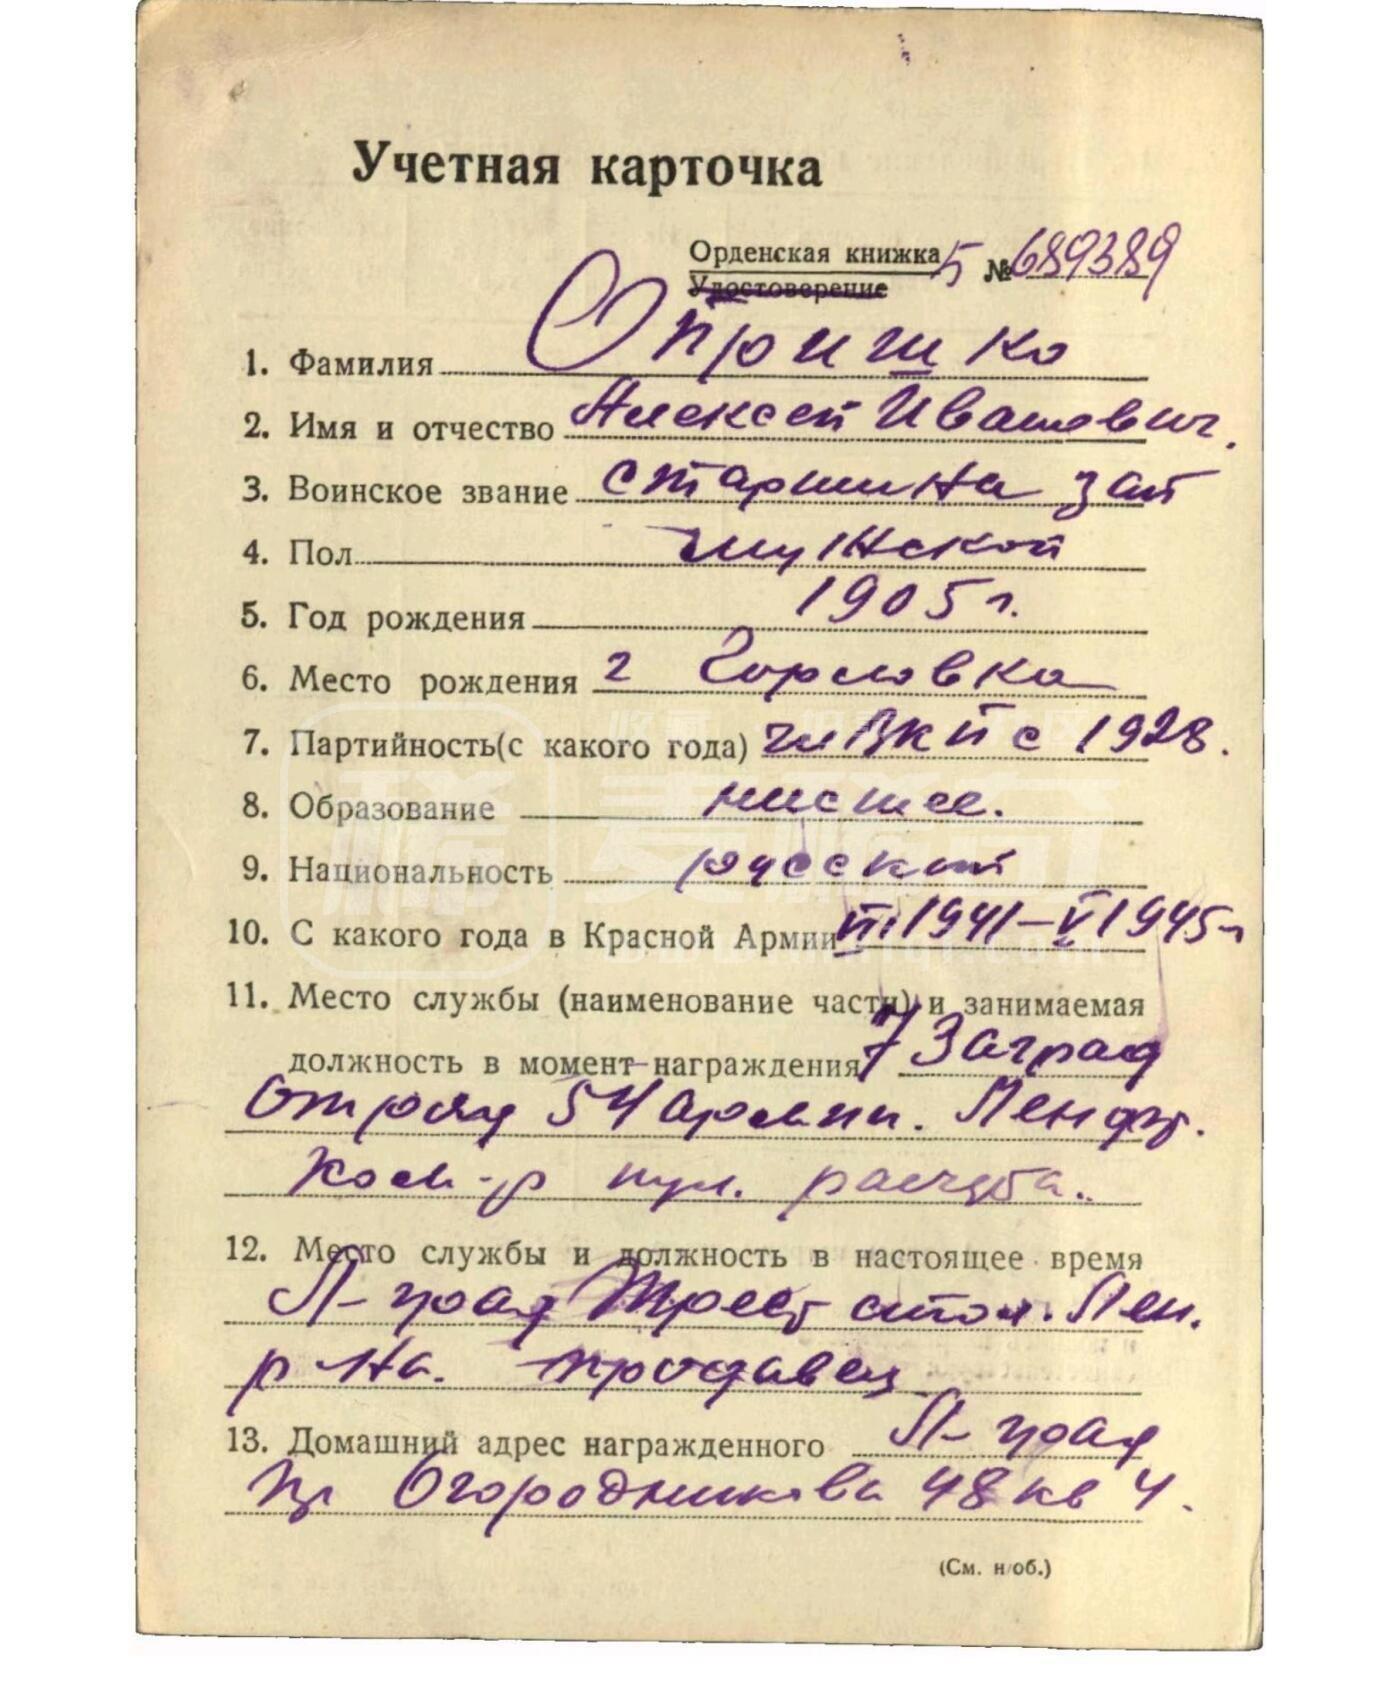 Учетная карточка
Орденская книжка Б № 689389
Удостоверение
1. Фамилия Опришко
2. Имя и отчество Алексей Иванович.
3. Воинское звание старшина зап
4. Пол мужской
5. Год рождения 1905 г.
6. Место рождения г Горловка
7. Партийность(с какого года) чл ВКП с 1928.
8. Образование низшее.
9. Национальность русский
10. С какого года в Красной Армии 1941-V 1945 г
11. Место службы (наименование части) и занимаемая
должность в момент награждения 7 Заград
Отряд 54 армии. Ленфр.
Ком-р пул. расчета.
12. Место службы и должность в настоящее время
Л-град Трест стол. Лен.
р-на. продавец
13. Домашний адрес награжденного Л-град
пр Огородникова 48 кв 4.
(См. н/об.)